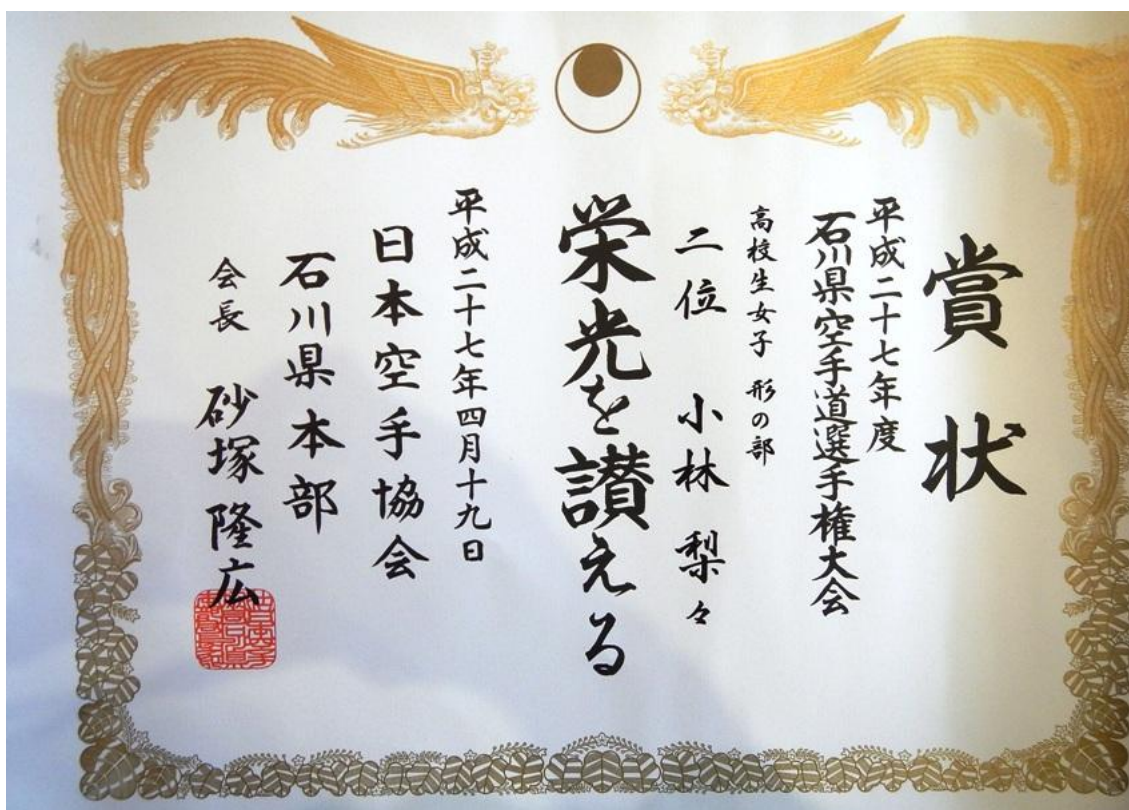 賞状
平成二十七年度
石川県空手道選手権大会
高校生女子 形の部
二位 小林 梨々
栄光を讃える
平成二十七年四月十九日
日本空手協会
石川県本部
会長 砂塚隆広